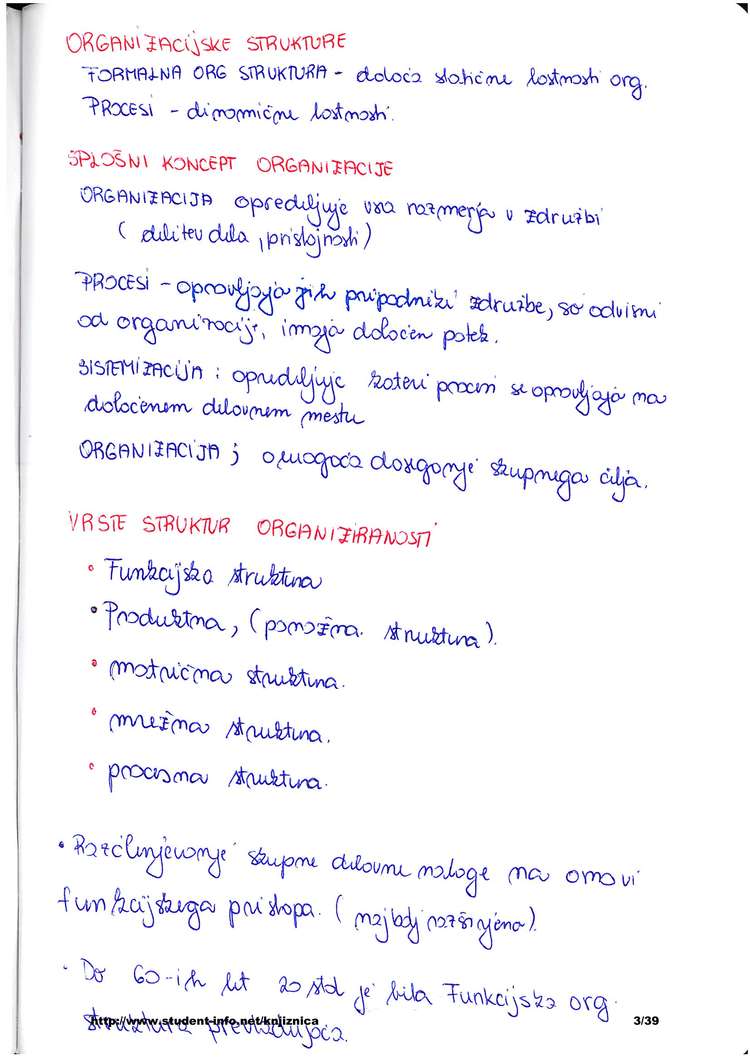 ORGANIZACIJSKE STRUKTURE
FORMALNA ORG STRUKTURA - določa statične lastnosti org.
PROCESI - dinamične lastnosti.
SPLOŠNI KONCEPT ORGANIZACIJE
ORGANIZACIJA opredeljuje vsa razmerja v združbi
( delitev dela, pristojnosti)
PROCESI - opravljajo jih pripadniki združbe, so odvisni
od organizacije, imajo določen potek.
SISTEMIZACIJA : opredeljuje kateri procesi se opravljajo na
določenem delovnem mestu
ORGANIZACIJA ; omogoča doseganje skupnega cilja.
VRSTE STRUKTUR ORGANIZIRANOSTI
• Funkcijska struktura
• Produktna, (panožna. struktura).
• matrična struktura.
• mrežna struktura.
• procesna struktura.
• Razčlenjevanje skupne delovne naloge na osnovi
funkcijskega pristopa. (najbolj razširjena).
• Do 60-ih let 20 stol je bila Funkcijska org.
struktura prevladujoča.
http://www.student-info.net/knjiznica
3/39